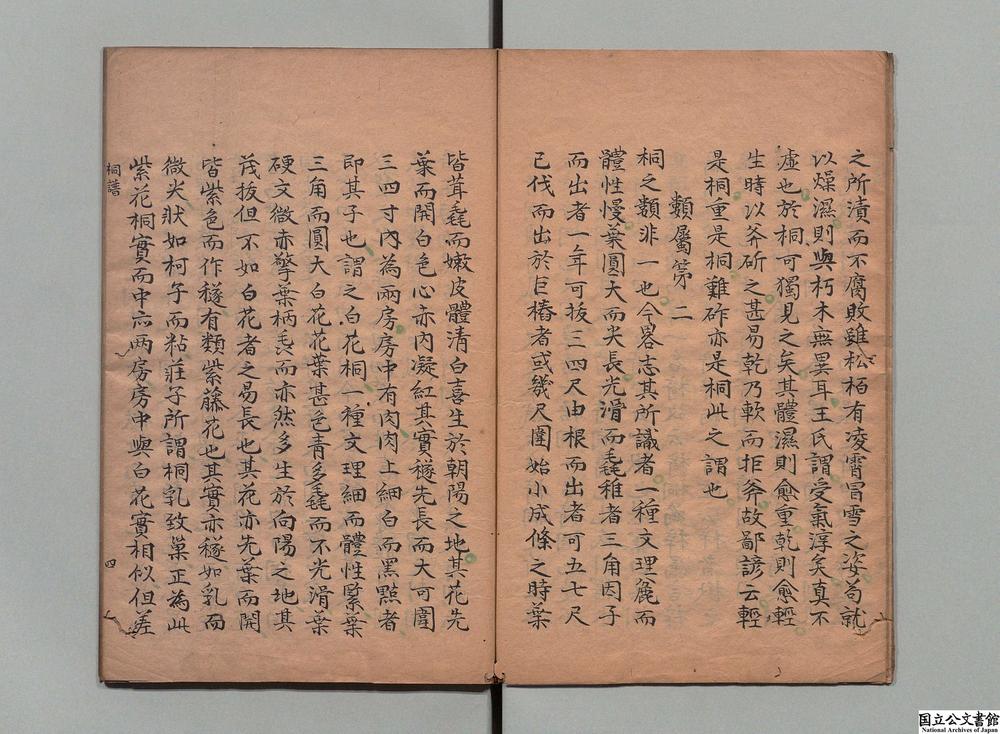 之所漬而不腐敗雖松栢有凌霄冒雪之姿苟就
以燥濕則與朽木無異耳王氏謂受氣淳矣真不
虛也於桐可獨見之矣其體濕則愈重乾則愈輕
生時以斧斫之甚易乾乃軟而拒斧故鄙諺云輕
是桐重是桐難斫亦是桐此之謂也
類屬第二
桐之類非一也今畧志其所識者一種文理麁而
體性慢葉圓大而尖長光滑而毳稚者三角因子
而出者一年可拔三四尺由根而出者可五七尺
已伐而出於巨樁者或幾尺圍始小成條之時葉
皆茸毳而嫩皮體清白喜生於朝陽之地其花先
葉而開白色心亦内凝紅其實穟先長而大可圍
三四寸内為兩房房中有肉肉上細白而黑點者
即其子也謂之白花桐一種文理細而體性緊葉
三角而圓大白花花葉甚色青多毳而不光滑葉
硬文微赤擎葉柄毳而亦然多生於向陽之地其
茂拔但不如白花者之易長也其花亦先葉而開
皆紫色而作穟有類紫藤花也其實亦穟如乳而
微尖狀如柯子而粘莊子所謂桐乳致巢正為此
紫花桐實而中亦两房房中與白花實相似但差
桐譜
四
国立公文書館
National Archives of Japan